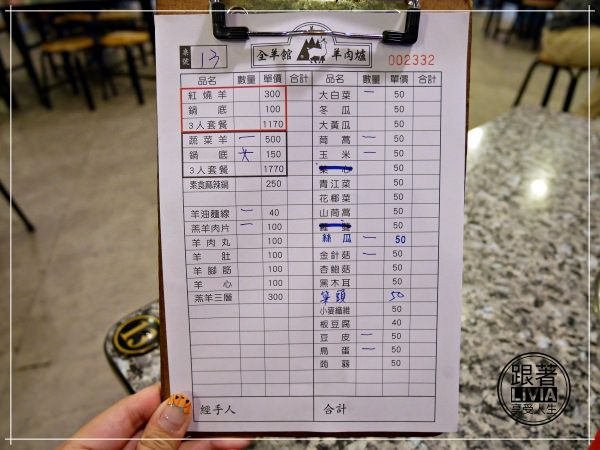 桌號 13
全羊館 羊肉爐
002332
品名 數量 單價 合計
紅燒羊 300
鍋底 100
3人套餐 1170
蔬菜羊 一 500
鍋底 大 150
3人套餐 1770
素食麻辣鍋 250
羊油麵線 二 40
羔羊肉片 一 100
羊肉丸 100
羊肚 100
羊腳筋 100
羊心 100
羔羊三層 300
經手人
品名 數量 單價 合計
大白菜 一 50
冬瓜 50
大黃瓜 50
茼蒿 一 50
玉米 一 50
50
青江菜 50
花椰菜 50
山茼蒿 50
50
絲瓜 一 50
金針菇 一 50
杏鮑菇 50
黑木耳 50
芋頭 50
小麥纖維 50
板豆腐 40
豆皮 一 50
鳥蛋 一 50
蒟蒻 50
合計
13
跟著
LIVIA
享受人生